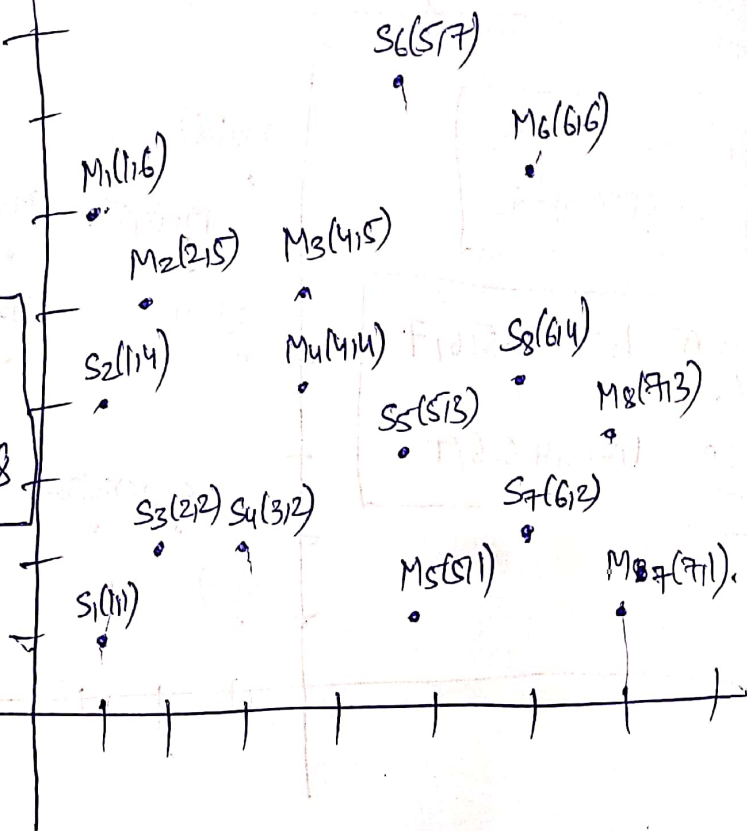 S6(5,7)
M6(6,6)
M1(1,6)
M2(2,5)
M3(4,5)
S2(1,4)
M4(4,4)
S8(6,4)
S5(5,3)
M8(7,3)
8
S3(2,2) S4(3,2)
S7(6,2)
S1(1,1)
M5(5,1)
M7(7,1).